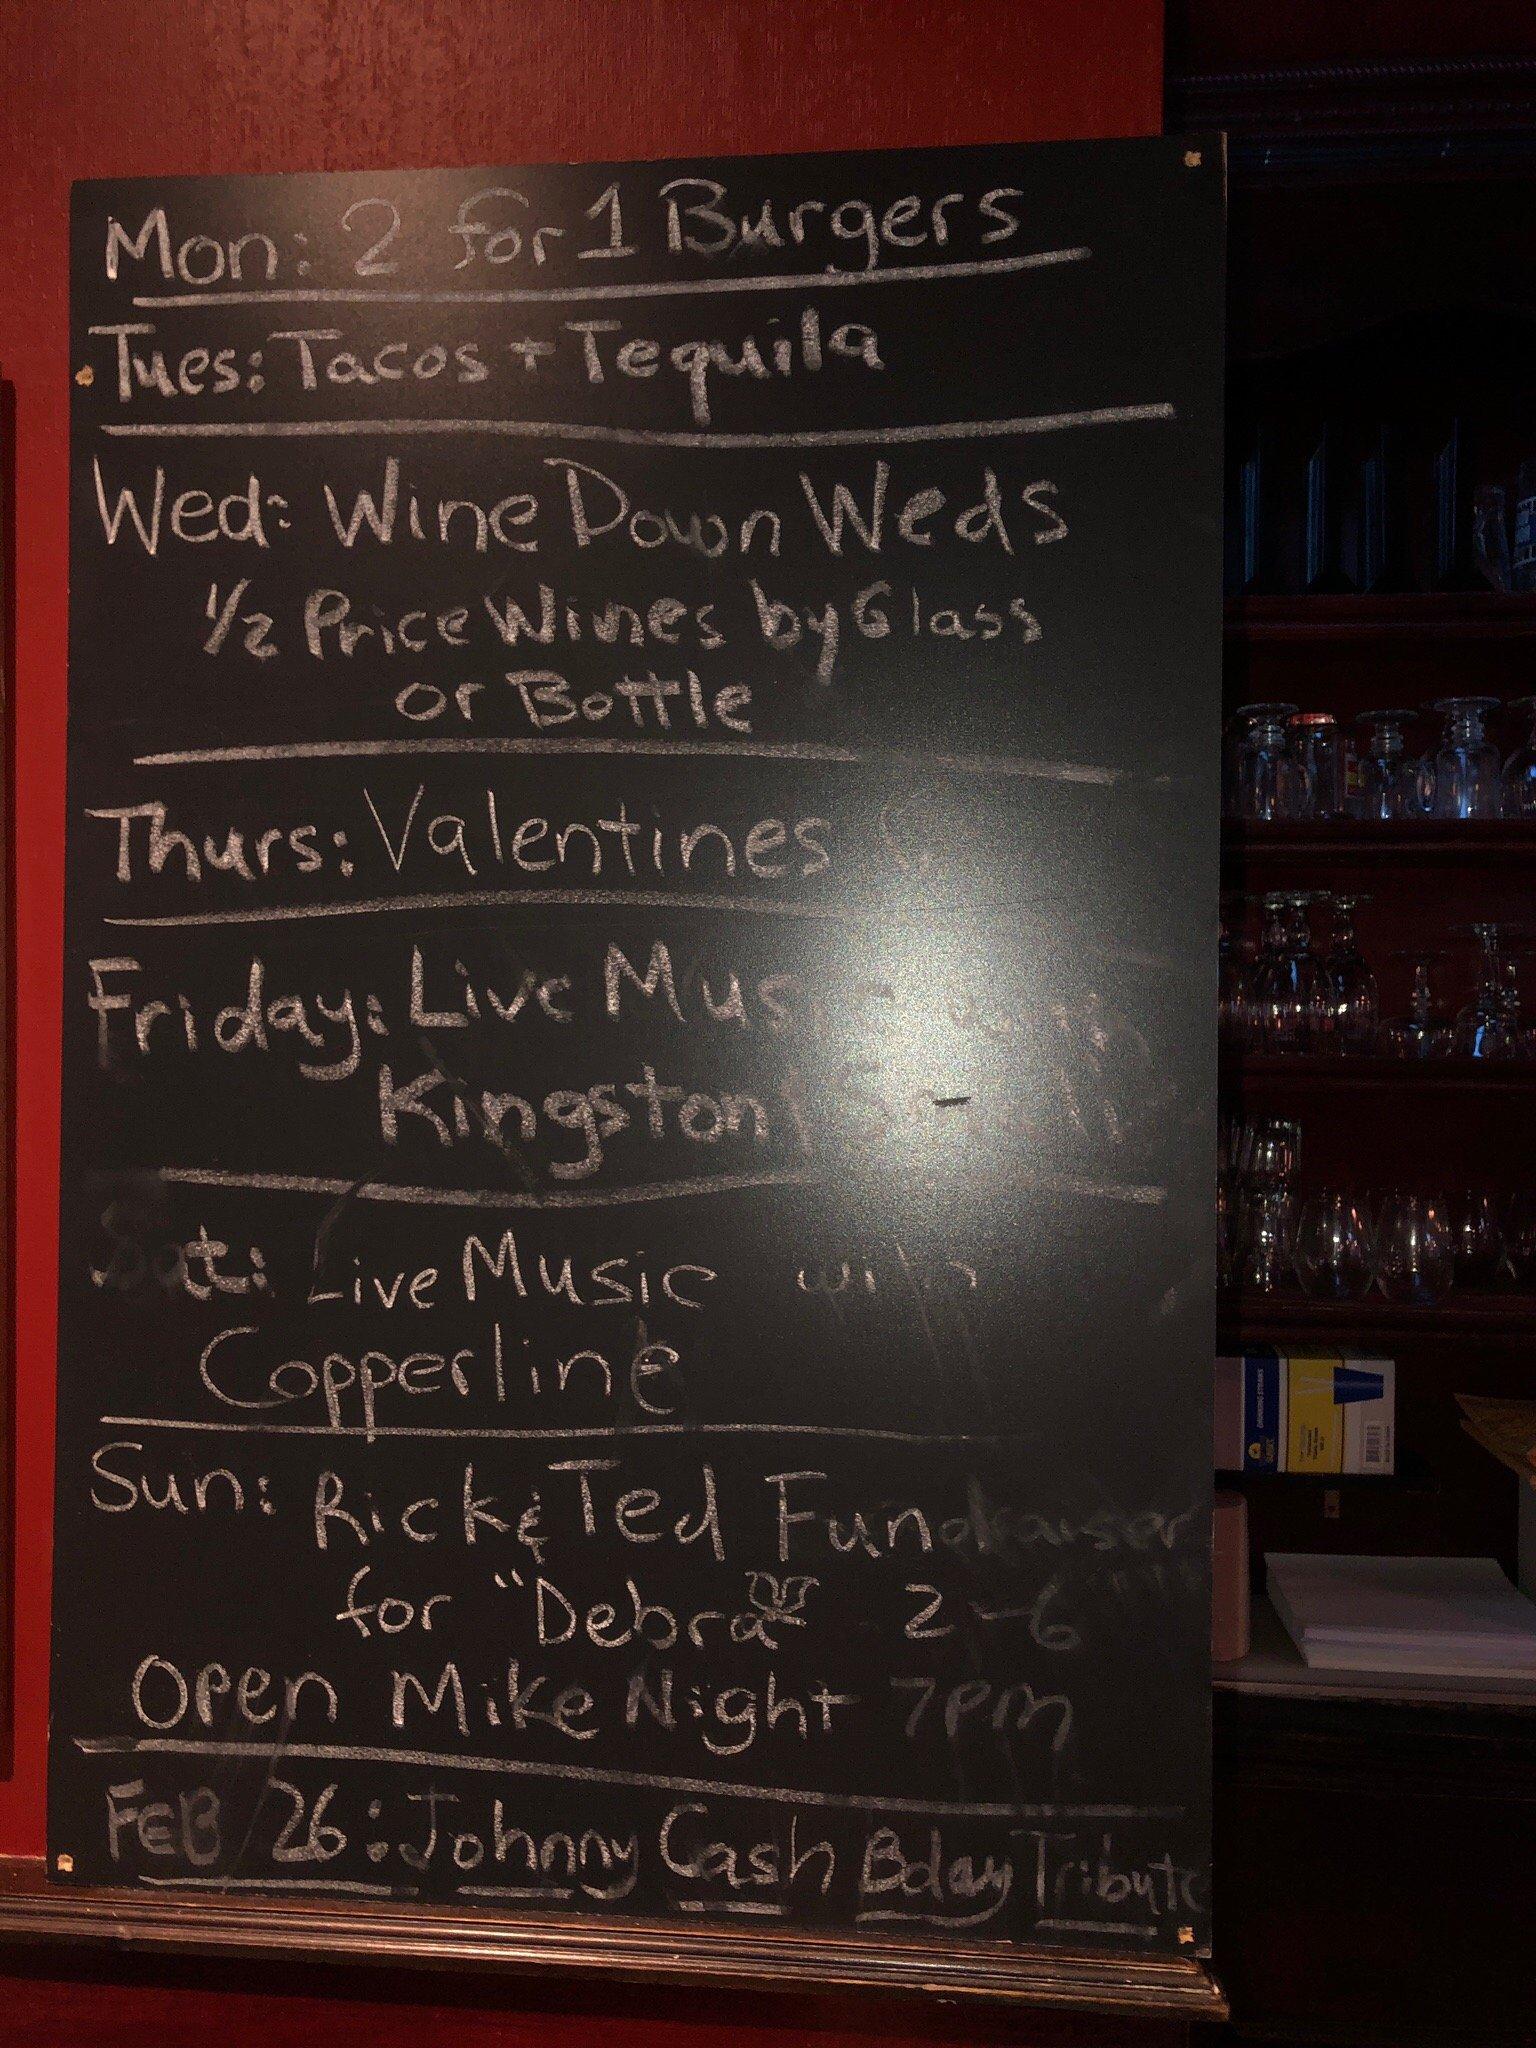 Mon: 2 for 1 Burgers
Tues: Tacos + Tequila
Wed: Wine Down Weds
1/2 Price Wines by Glass
or Bottle
Thurs: Valentines
Friday: Live Music with
Kingston
Sat: Live Music with
Copperline
Sun: Rick & Ted Fundraiser
for "Debra" 2-6
Open Mike Night 7pm
FEB 26: Johnny Cash Bday Tribute